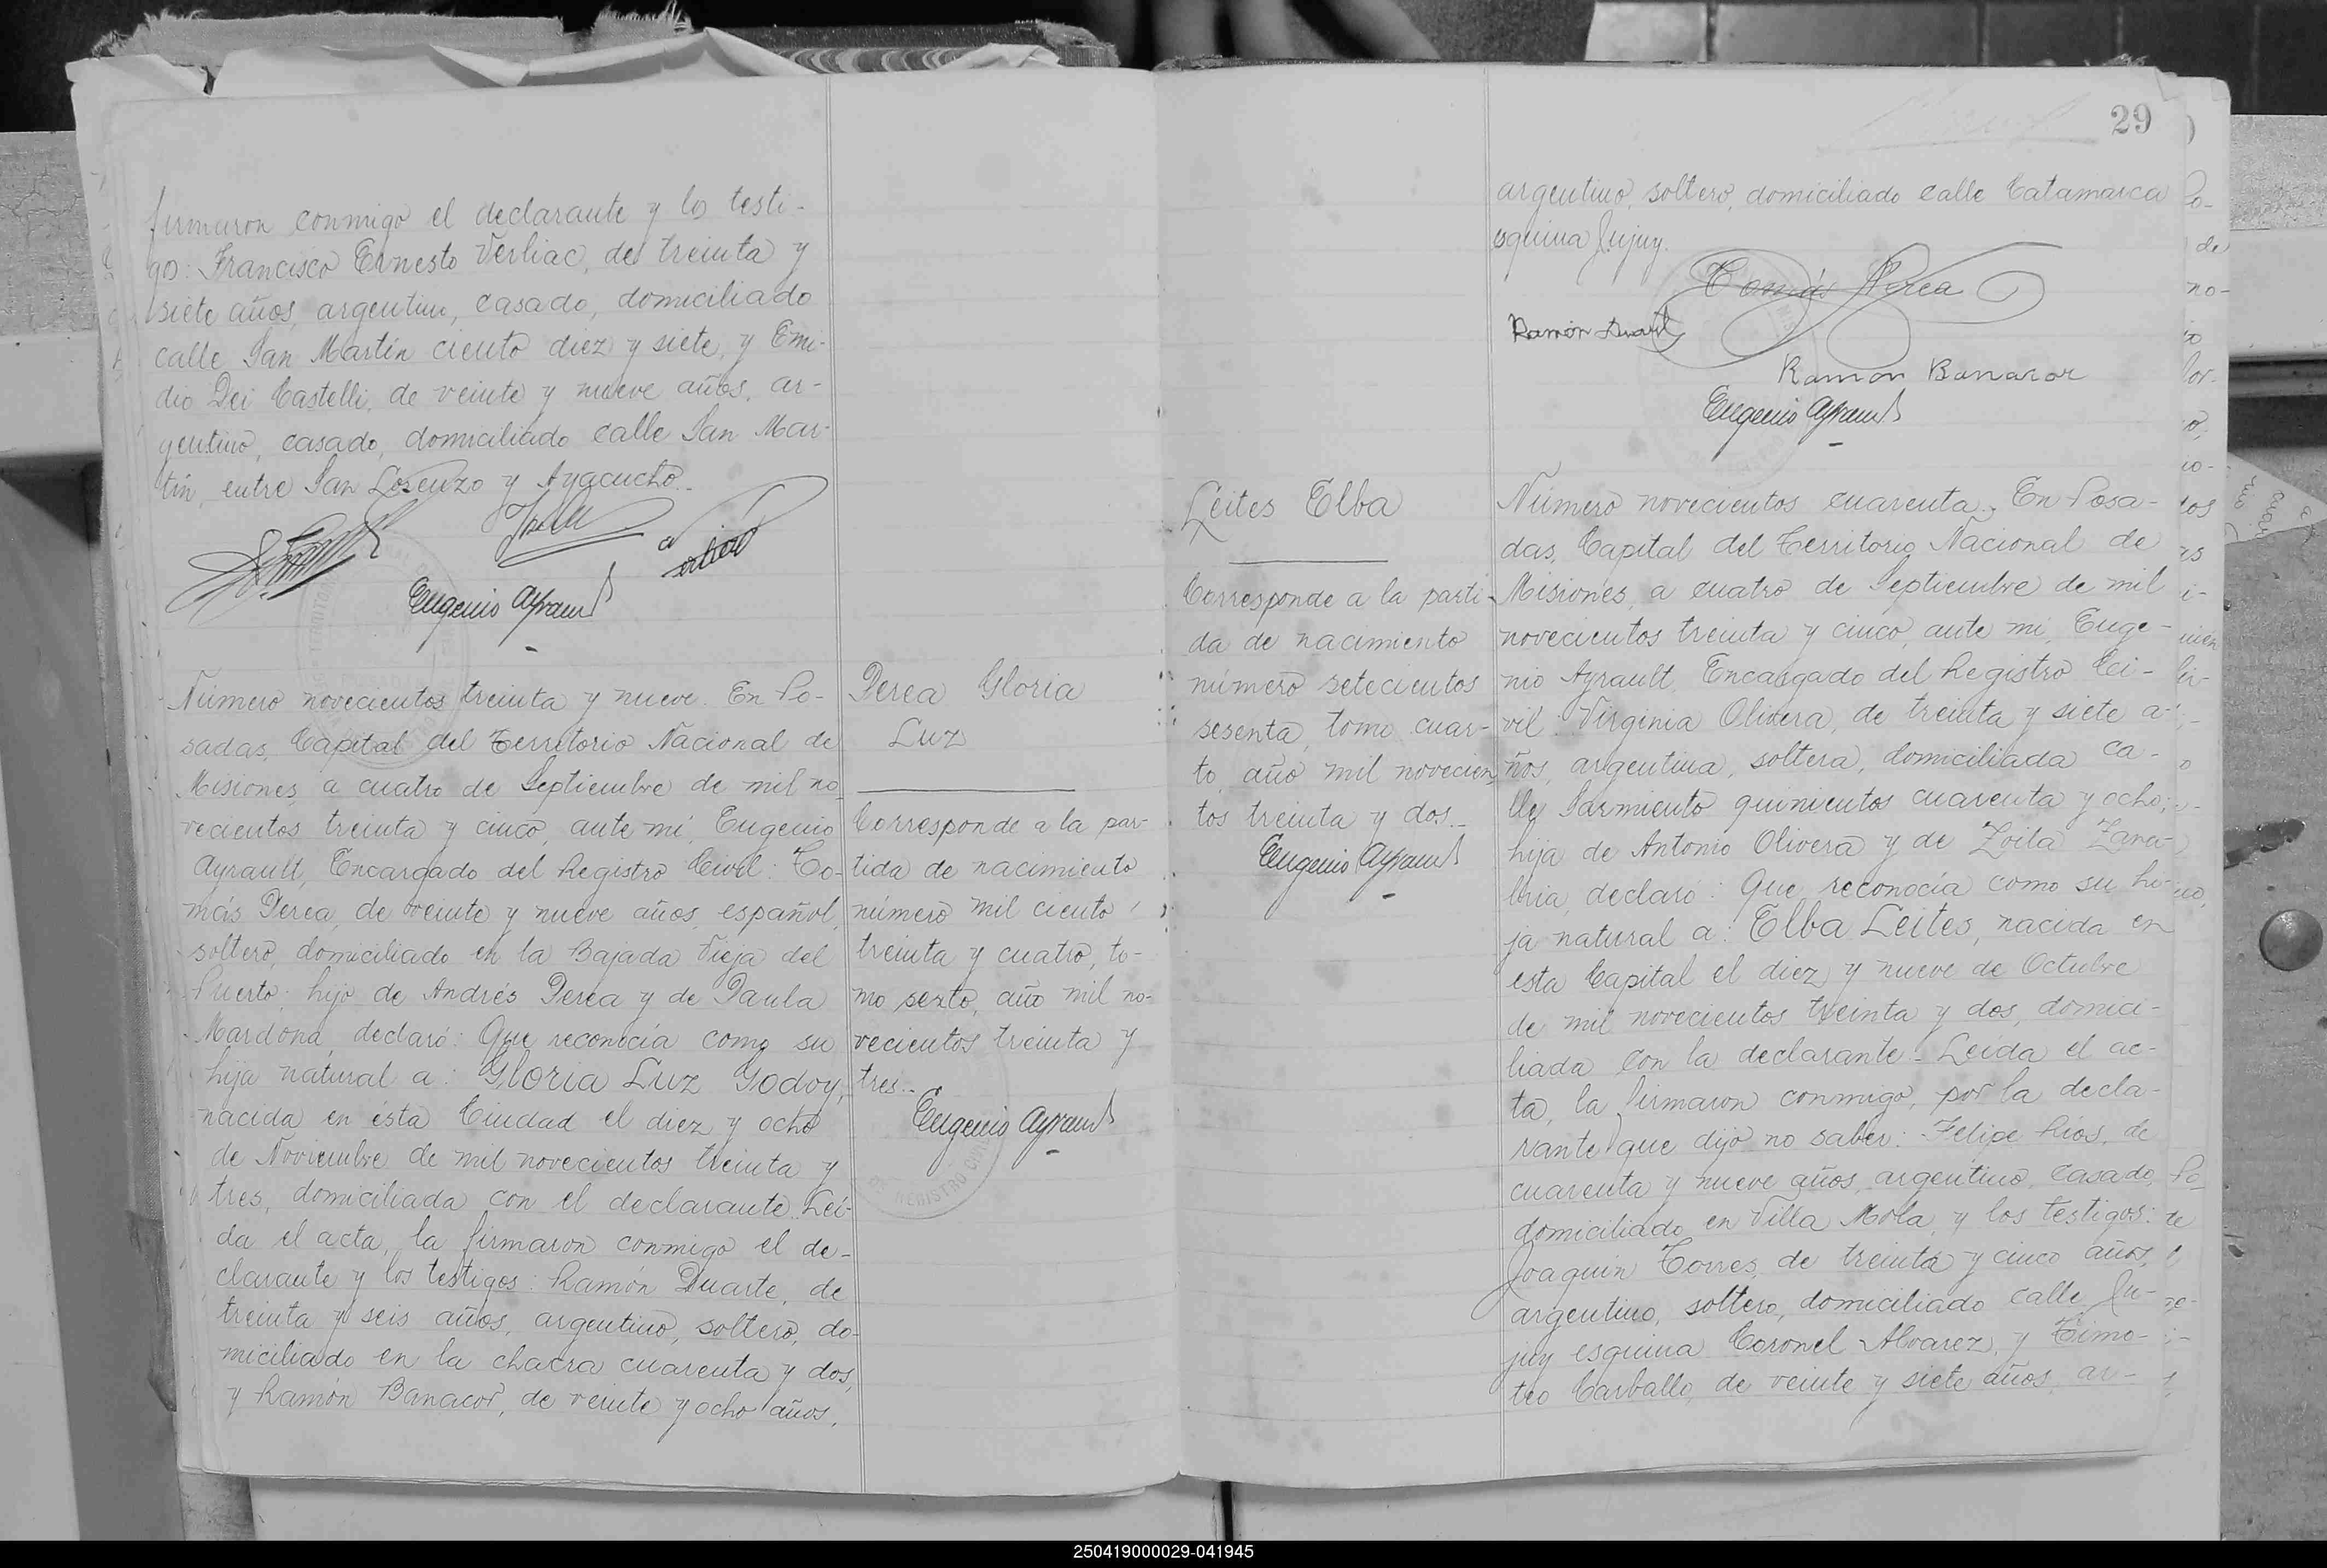 firmaron conmigo el declarante y los testi-
gos: Francisco Ernesto Verliac, de treinta y
siete años, argentino, casado, domiciliado
calle San Martín ciento diez y siete, y Emi-
dio Dei Castelli, de veinte y nueve años, ar-
gentino, casado, domiciliado calle San Mar-
tín, entre San Lorenzo y Ayacucho.-
Eugenio Ayrault
Número novecientos treinta y nueve. En Po-
sadas, Capital del Territorio Nacional de
Misiones, a cuatro de Septiembre de mil no-
vecientos treinta y cinco, ante mí, Eugenio
Ayrault, Encargado del Registro Civil: To-
más Perea, de veinte y nueve años, español,
soltero, domiciliado en la Bajada Vieja del
Puerto; hijo de Andrés Perea y de Paula
Mardona, declaró: Que reconocía como su
hija natural a: Gloria Luz Godoy,
nacida en ésta Ciudad el diez y ocho
de Noviembre de mil novecientos treinta y
tres, domiciliada con el declarante. Leí-
da el acta, la firmaron conmigo el de-
clarante y los testigos: Ramón Duarte, de
treinta y seis años, argentino, soltero, do-
miciliado en la chacra cuarenta y dos,
y Ramón Banacor, de veinte y ocho años,
Perea Gloria
Luz
Corresponde a la par-
tida de nacimiento
número mil ciento
treinta y cuatro, to-
mo sexto, año mil no-
vecientos treinta y
tres.-
Eugenio Ayrault
REGISTRO CIVIL
29
argentino, soltero, domiciliado calle Catamarca
esquina Jujuy.
Tomás Perea
Ramón Duarte
Ramon Banacor
Eugenio Ayrault
Leites Elba
Corresponde a la parti-
da de nacimiento
número setecientos
sesenta, tomo cuar-
to, año mil novecien-
tos treinta y dos.-
Eugenio Ayrault
Número novecientos cuarenta. En Posa-
das, Capital del Territorio Nacional de
Misiones, a cuatro de Septiembre de mil
novecientos treinta y cinco, ante mí, Euge-
nio Ayrault, Encargado del Registro Ci-
vil: Virginia Olivera, de treinta y siete a-
ños, argentina, soltera, domiciliada ca-
lle Sarmiento quinientos cuarenta y ocho;
hija de Antonio Olivera y de Zoila Zana-
bria, declaró: Que reconocía como su hi-
ja natural a: Elba Leites, nacida en
esta Capital el diez y nueve de Octubre
de mil novecientos treinta y dos, domici-
liada con la declarante.- Leída el ac-
ta, la firmaron conmigo, por la decla-
rante que dijo no saber: Felipe Ríos, de
cuarenta y nueve años, argentino, casado,
domiciliado en Villa Mola, y los testigos:
Joaquín Torres, de treinta y cinco años,
argentino, soltero, domiciliado calle Ju-
juy esquina Coronel Alvarez, y Timo-
teo Carballo, de veinte y siete años, ar-
250419000029-041945